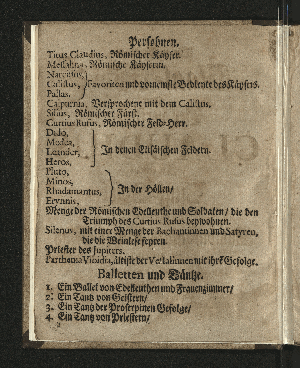 Persohnen.
Titus Claudius, Römischer Käyser.
Messalina, Römische Käyserin.
Narcissus,
Calistus, Favoriten und vornemste Bediente des Käysers.
Pallas,
Calpurnia, Versprochene mit dem Calistus.
Silius, Römischer Fürst.
Curtius Rufus, Römischer Feld-Herr.
Dido,
Medea,
Leander, In denen Elisäischen Feldern.
Heros,
Pluto,
Minos,
Rhadamantus, In der Höllen/
Erynnis,
Menge der Römischen Edelleuthe und Soldaten/ die den
Triumph des Curtius Rufus beywohnen.
Silenus, mit einer Menge der Bachantinnen und Satyren,
die die Weinlese feyren.
Priester des Jupiters.
Parthenia Vibidia, älteste der Vestalinnen mit ihrē Gefolge.
Balletten und Däntze.
1. Ein Ballet von Edelleuthen und Frauenzimmer/
2. Ein Tantz von Geistern/
3. Ein Tantz der Proserpinen Gefolge/
4. Ein Tantz von Priestern/